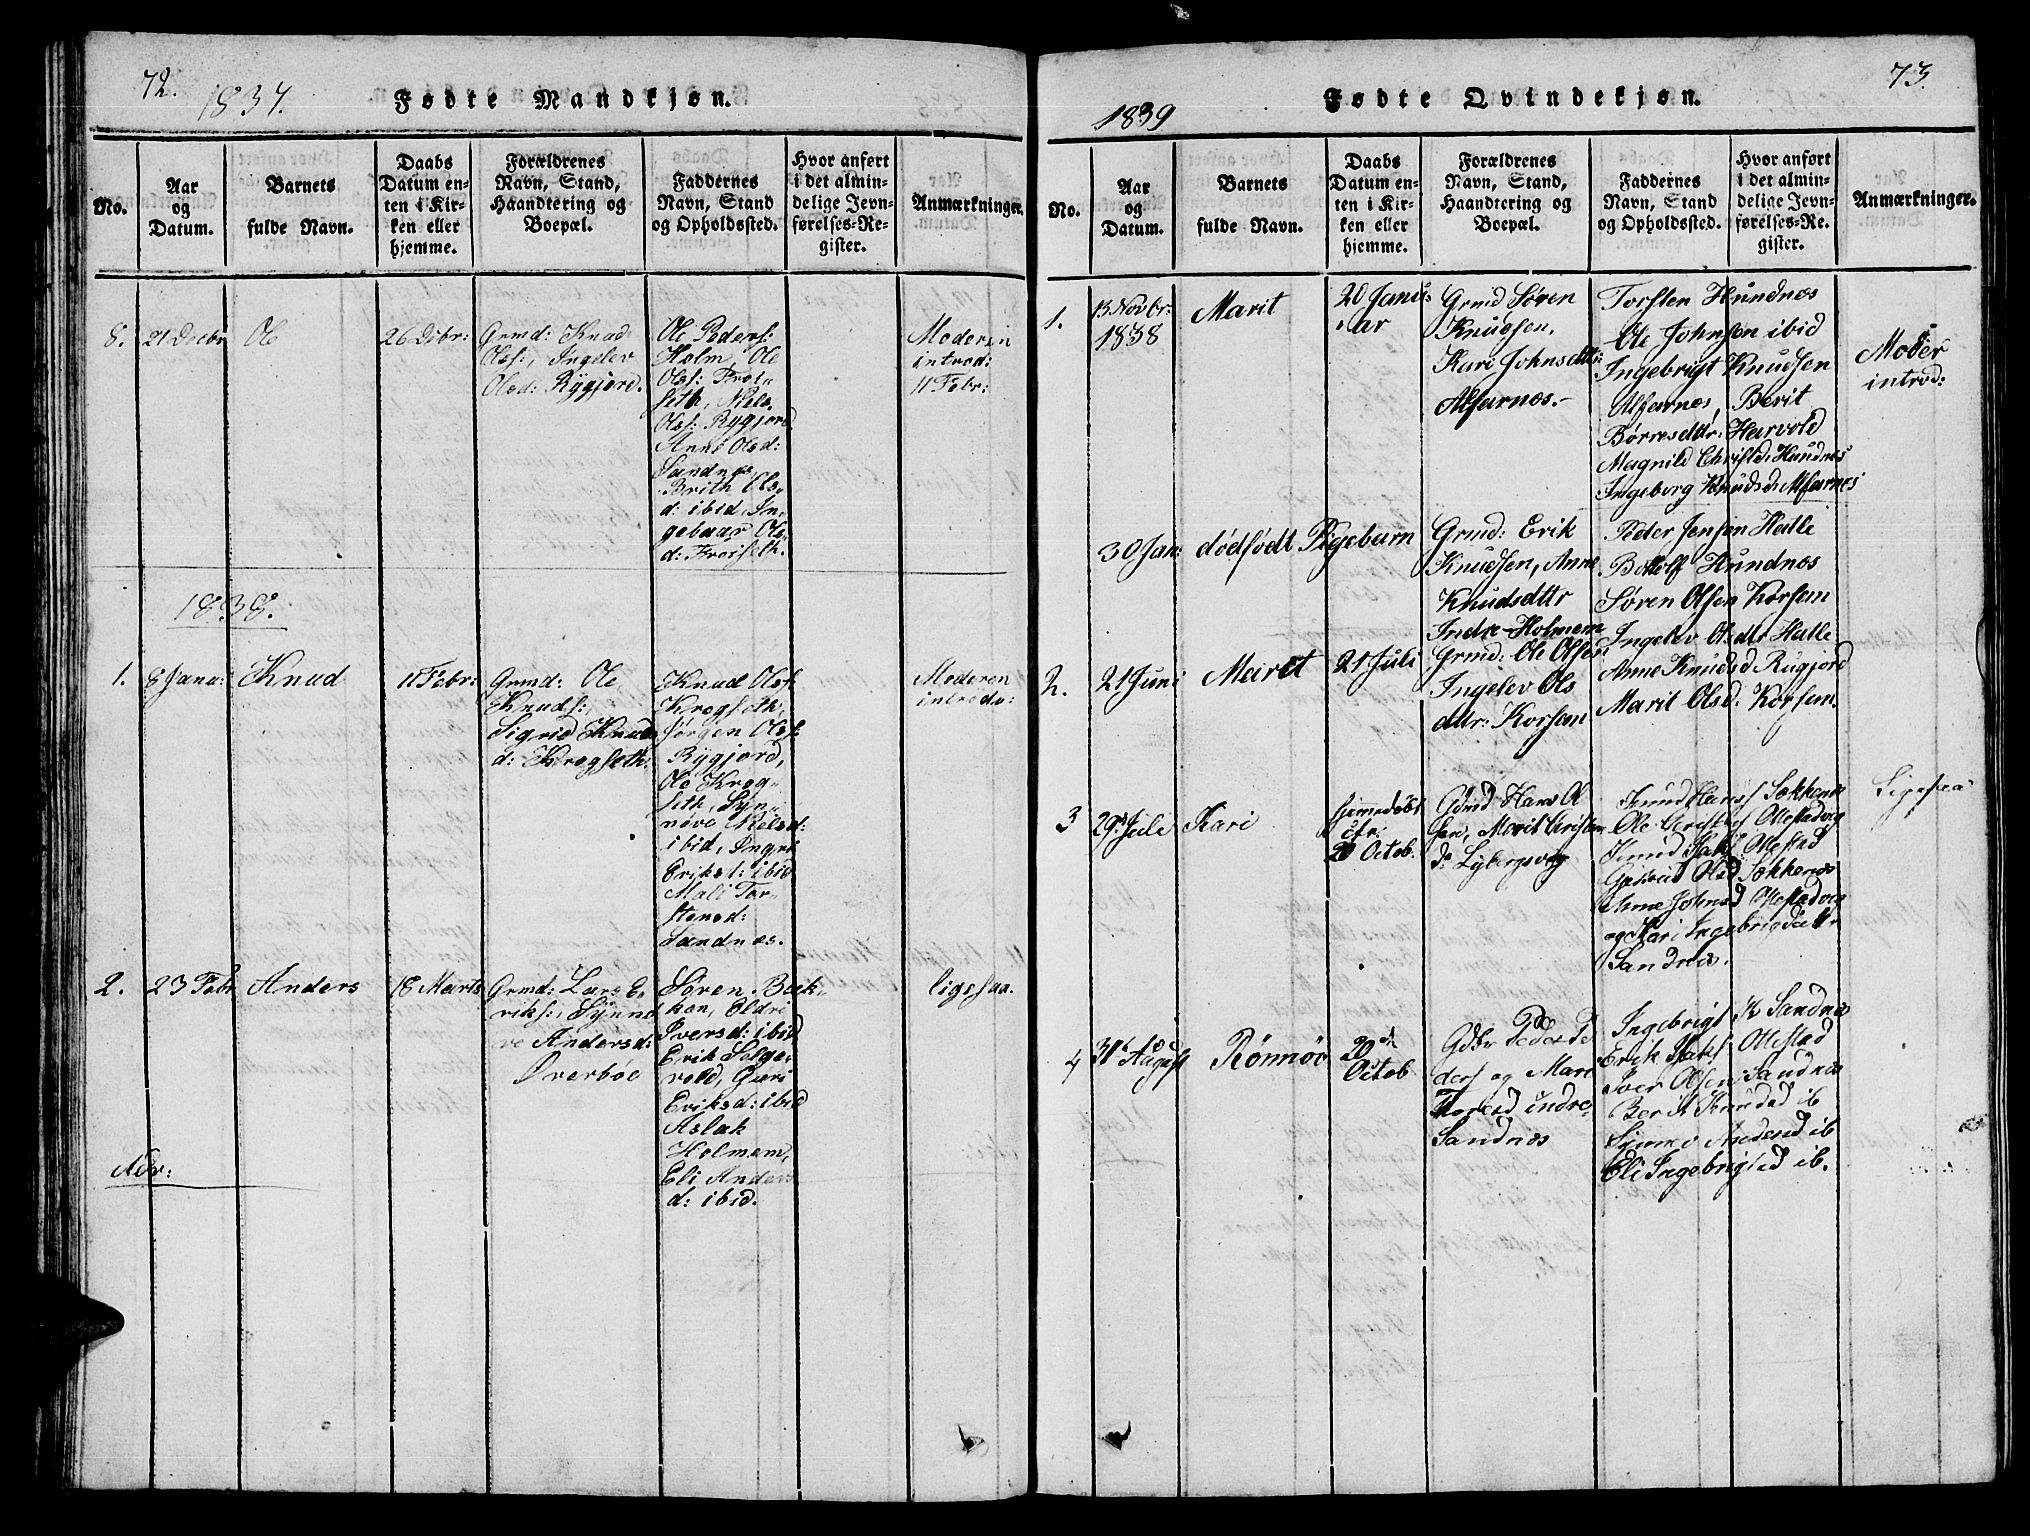 72.
1837.
Fødte Mandkjøn.
No.
Aar
og
Datum.
Barnets
fulde Navn.
Daabs
Datum en-
ten i Kir-
ken eller
hjemme.
Forældrenes
Navn, Stand,
Haandtering og
Boepæl.
Faddernes
Navn, Stand
og Opholdssted.
Hvor anført
i det almin-
delige Jevn-
førelses-Re-
gister.
Anmærkninger.
8.
21 Decbr
Ole
26 Debr:
Grmd: Knud
Olss:, Ingelev
Olsd: Rygjord.
Ole Peders:
Holm, Ole
Olss: Troi-
seth, Niels
Olss: Rygjord
Anne Olsd:
Sandnæs,
Brith Ols-
d: ibid, In-
gebaar Ols-
d: Troiseth.
Moderen
introd:
11 Febr:
1838.
1.
8 Janu:
Knud
11 Febr:
Grmd: Ole
Knuds:,
Sigrid Knud
d: Krogseth:
Knud Olss:
Krogseth,
Jørgen Olss:
Rygjord,
Ole Krog-
seth, Syn-
nøve Nielsd:
ibid, Ingri
Eriksd: ibid
Mali Tor-
stensd:
Sandnæs.
Moderen
introdu:
2.
23 Febr
Anders
18 Marts
Grmd: Lars E-
riks:, Synnø
ve Andersd:
Øverboe
Søren Bæk-
ken, Eldri
Iversd: ibid
Erik Selge-
vold, Guri
Eriksd: ibid
Aslak
Holmem,
Eli Anders
d: ibid.
ligesaa.
73.
1839
Fødte Qvindekjøn.
No.
Aar
og
Datum.
Barnets
fulde Navn.
Daabs
Datum en-
ten i Kir-
ken eller
hjemme.
Forældrenes
Navn, Stand,
Haandtering og
Boepæl.
Faddernes
Navn, Stand
og Opholdssted.
Hvor anført
i det almin-
delige Jevn-
førelses-Re-
gister.
Anmærkninger.
1.
13 Novbr:
1838
Marit
20 Janu-
ar
Grmd Søren
Knudsen,
Kari Johnsdttr:
Alfarnes.
Torsten Hundnos
Ole Johnsen ibid
Ingebrigt Knudsen
Alfarnes, Berit
Børresdttr: Harvold
Magnild Christd: Hundnes
Ingeborg Knudsd: Alfarnes
Moder
introd:
30 Jan:
dødfødt Pigebarn
Grmd: Erik
Knudsen, Anne
Knudsdttr
Indre Holmem
Peder Jensen Halle
Botolf Hundnos
Søren Olsen Korsam
Ingelev Olsdtr Halle
Anne Knudsd Rugjord
Marit Olsd. Korsam.
2.
21 Juni
Maret
21 Juli
Grmd: Ole Olsen
Ingelev Ols
dttr: Korsam
3
29 Jule
Kari
20 Octob.
Gdmd Hans Ol
sen, Marit Christen
d: Lybergsvig
Knud Hans Søkkenes
Ole Christens Ottestadvig
Knud Isaks Ottestad
Olsd Søkkenæs
Anne Johnsd Ottestadvig
og Kari Ingebrigsdattr
Sandnæs.
Ligesaa
4
31 August
Rönnöv
20de
Octob
Peder Pe
ders og Mari
Toresd indre
Sandnæs
Ingebrigt K Sandnæs
Erik Isaks Ottestad
Iver Olsen Sandnæs
Berit Knudsd ib
Synnev Andersd ib
Eli Ingebrigtsd ib.